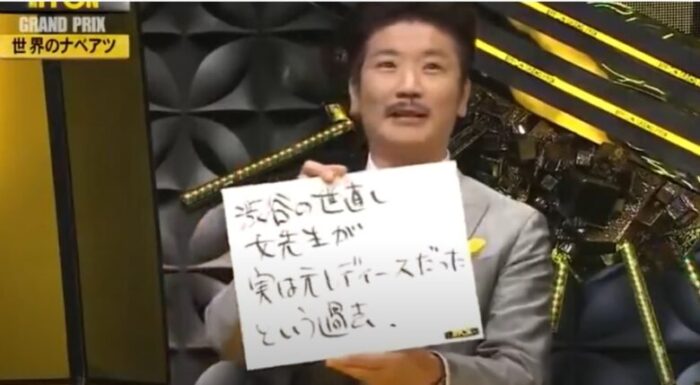 GRAND PRIX
世界のナベアツ
渋谷の世直し
女先生が
実は元レディースだった
という過去、